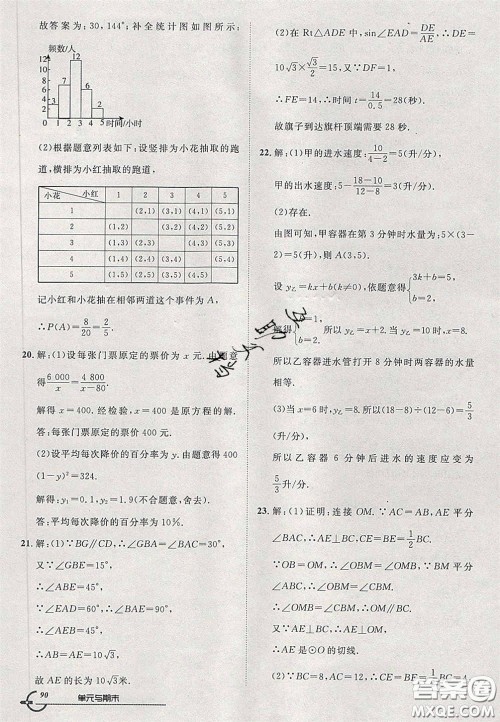 故答案为:30,144°;补全统计图如图所示:
频数/人
12
10
8
6
4
2
0 1 2 3 4 5 时间/小时
(2)根据题意列表如下:设竖排为小花抽取的跑
道,横排为小红抽取的跑道,
小花 小红 1 2 3 4 5
1 (2,1) (3,1) (4,1) (5,1)
2 (1,2) (3,2) (4,2) (5,2)
3 (1,3) (2,3) (4,3) (5,3)
4 (1,4) (2,4) (3,4) (5,4)
5 (1,5) (2,5) (3,5) (4,5)
记小红和小花抽在相邻两道这个事件为 A,
∴P(A)=8/20=2/5.
20. 解:(1)设每张门票原定的票价为 x 元.由题意
得6 000/x=4 800/(x-80).
解得 x=400. 经检验,x=400 是原方程的根.
答:每张门票原定的票价 400 元.
(2)设平均每次降价的百分率为 y.由题意得 400
(1-y)²=324.
解得:y₁=0.1,y₂=1.9(不合题意,舍去).
答:平均每次降价的百分率为 10%.
21. 解:(1)∵BG∥CD,∴∠GBA=∠BAC=45°,
又∵∠GBE=30°,
∴∠ABE=45°,
∵∠EAD=60°,
∴∠BAE=30°,
∴∠AEB=90°,
∵AB=20,
∴AE=10√3,
故 AE 的长为 10√3米.
(2)在 Rt△ADE 中,sin∠EAD=DE/AE,∴DE=
10√3×√3/2=15. 又∵DF=1.
∴FE=14,∴时间 t=14/0.5=28(秒).
故旗子到达旗杆顶端需要 28 秒.
22. 解:(1)甲的进水速度:10/(4-2)=5(升/分),
甲的出水速度:5-(18-10)/(12-8)=3(升/分).
(2)存在.
由图可知,甲容器在第 3 分钟时水量为:5×(3-
2)=5(升),则 A(3,5).
设 y乙=kx+b(k≠0),依题意得{3k+b=5,
b=2.
解得{k=1,
b=2. 所以 y乙=x+2. 当 y乙=10 时,x=8.
所以乙容器进水管打开 8 分钟时两容器的水量
相等.
(3)当 x=6 时,y=8. 所以(18-8)÷(12-6)=5/3
(升/分).
所以乙容器 6 分钟后进水的速度应变为
5/3升/分.
23. 解:(1)证明:连接 OM. ∵AC=AB,AE 平分
∠BAC,∴AE⊥BC,CE=BE=1/2BC=4.
∵OB=OM,∴∠OBM=∠OMB.
∵BM 平分∠ABC,∴∠OBM=∠CBM,
∴∠OMB=∠CBM,∴OM∥BC.
又∵AE⊥BC,∴AE⊥OM,∴AE 是⊙O的切线.
90 单元与期末
答案圈
MXQE.COM